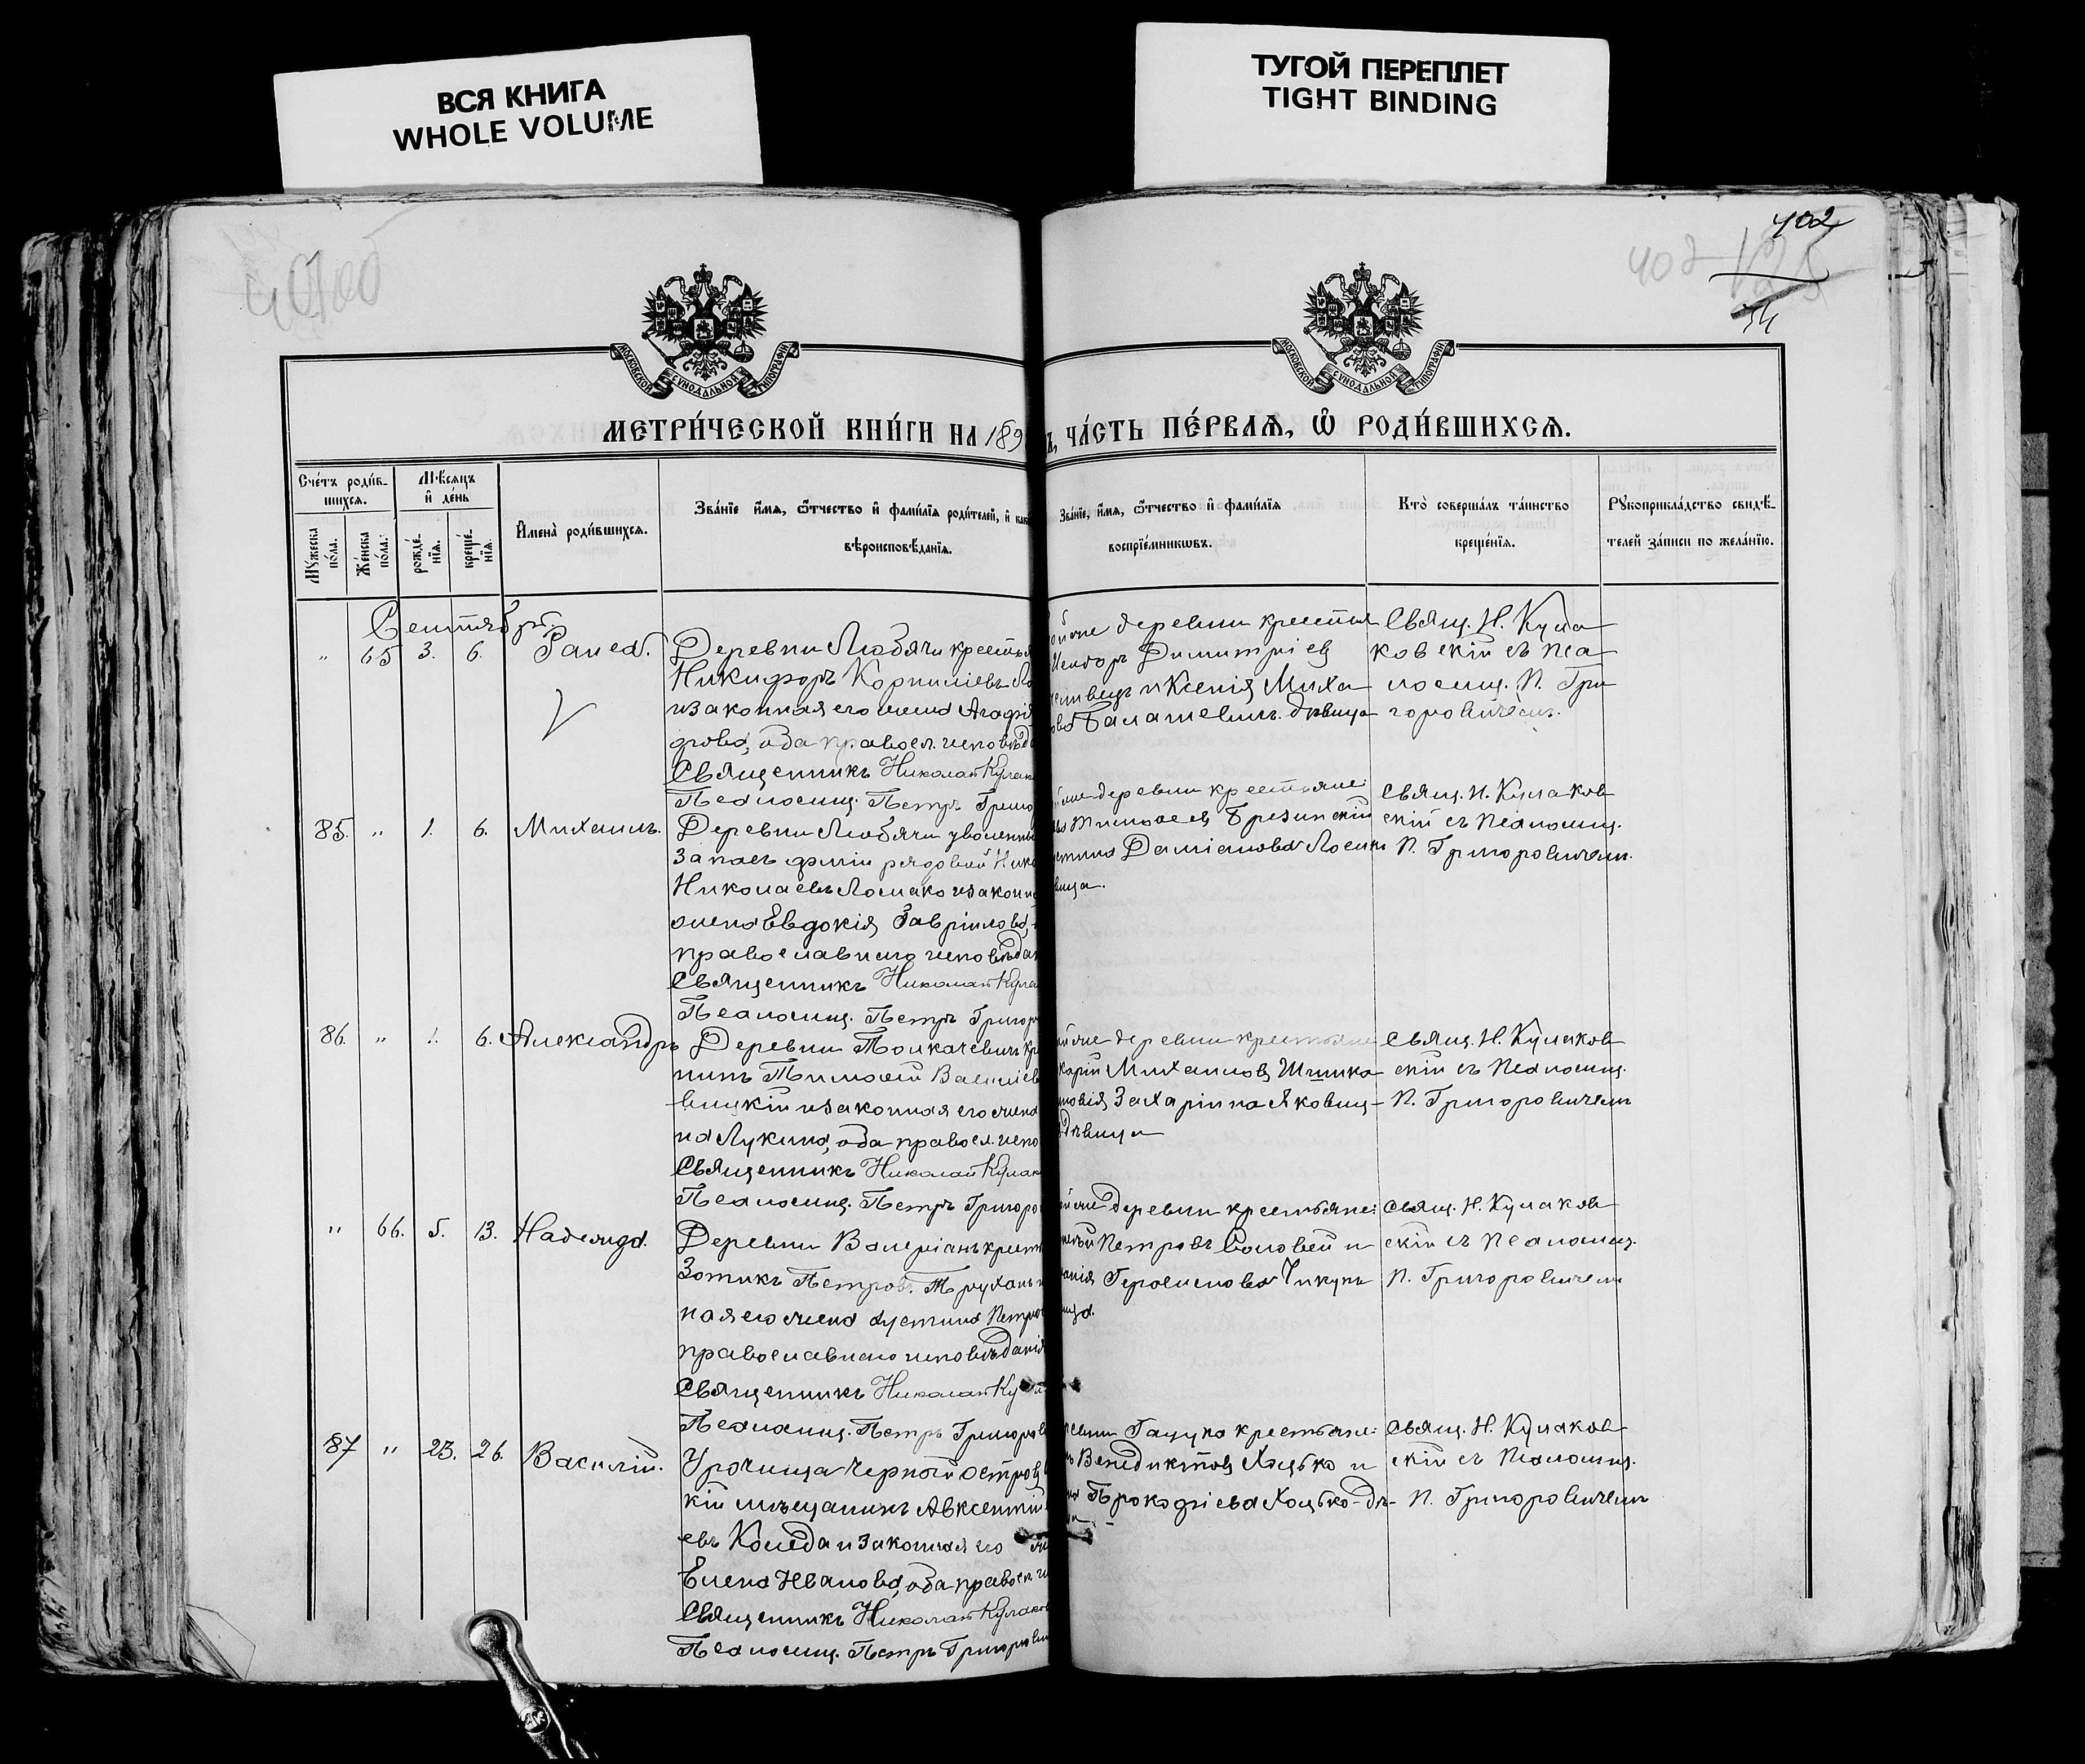 ВСЯ КНИГА
WHOLE VOLUME
ТУГОЙ ПЕРЕПЛЕТ
TIGHT BINDING
402
МОСКОВСКОЙ СѴНОДАЛЬНОЙ ТИПОГРАФІИ
МОСКОВСКОЙ СѴНОДАЛЬНОЙ ТИПОГРАФІИ
МЕТРИ́ЧЕСКОЙ КНИ́ГИ НА 189
ЧА́СТЬ ПЕ́РВАѦ, Ѡ҆ РОДИ́ВШИХСѦ.
Сче́тъ роди́в-
шихсѧ.
Мѣ́сяцъ
и҆ де́нь
Мꙋ́жеска по́ла.
Же́нска по́ла.
рожде́-
нїѧ.
креще́-
нїѧ.
И҆мена̀ роди́вшихсѧ.
Зва́нїе и҆́мѧ, ѻ҆́тчество и҆ фами́лїѧ роди́телей, и҆ как
вѣроисповѣ́данїѧ.
Зва́нїе, и҆́мѧ, ѻ҆́тчество и҆ фами́лїѧ
воспрїе́мникѡвъ.
Кто̀ соверша́лъ та́инство
креще́нїѧ.
Рꙋкоприкла́дство свидѣ́-
телей за́писи по жела́нїю.
Сентябрь.
" 65 3. 6.
Деревни Любячи крестья
Никифоръ Корниліевъ Ло
и законная его жена Агафія
рова, оба правосл. исповѣда
Священникъ Николай Кулак
Псаломщ. Петръ Григо
деревни крестья
Димитріев
и Ксенія Миха
Балашевичъ. дѣвица
Свящ. Н. Кула
ковскій съ пса
ломщ. П. Гри
горовичемъ.
85. " 1. 6. Михаилъ.
Деревни Любячи уволенны
запасъ арміи рядовой Нико
Николаевъ Ломако и законна
жена Евдокія Гавріилова,
православнаго исповѣдан
Священникъ Николай Кула
Псаломщ. Петръ Григор
деревни крестьяне:
Тимофеев Брезинскій
Даміанова Лосик
вица.
Свящ. Н. Кулаков
скій съ псаломщ.
П. Григоровичем.
86. " 1. 6. Александръ
Деревни Толкачевичъ кре
нинъ Тимофей Василіев
вицкій и законная его жена
на Лукина, оба правосл. испо
Священникъ Николай Кулак
Псаломщ. Петръ Григоро
деревни крестьяне
Михаилов Шишка
Захаріина Яковиц-
дѣвица
Свящ. Н. Кулаков
скій съ псаломщ.
П. Григоровичем
" 66. 5. 13. Надежда.
Деревни Валеріанъ крестья
Зотикъ Петров. Трухань и
ная его жена Іустина Петро
православнаго исповѣданія
Священникъ Николай Ку
Псаломщ. Петръ Григоров
деревни крестьяне:
Петровъ Соловей и
Герасимова Чикунъ
ица.
Свящ. Н. Кулаков
скій съ псаломщ.
П. Григоровичем
87 " 23. 26. Василій.
Урочища Черный островъ
кій мѣщанинъ Авксентій
евъ Комеда и законная его
Елена Иванова, оба правосл. и
Священникъ Николай Кулаков
Псаломщ. Петръ Григорови
Гацука крестьяне:
Венедиктов Хацько и
Прокофіева Хацько-дѣ-
Свящ. Н. Кулаков
скій съ псаломщ.
П. Григоровичем